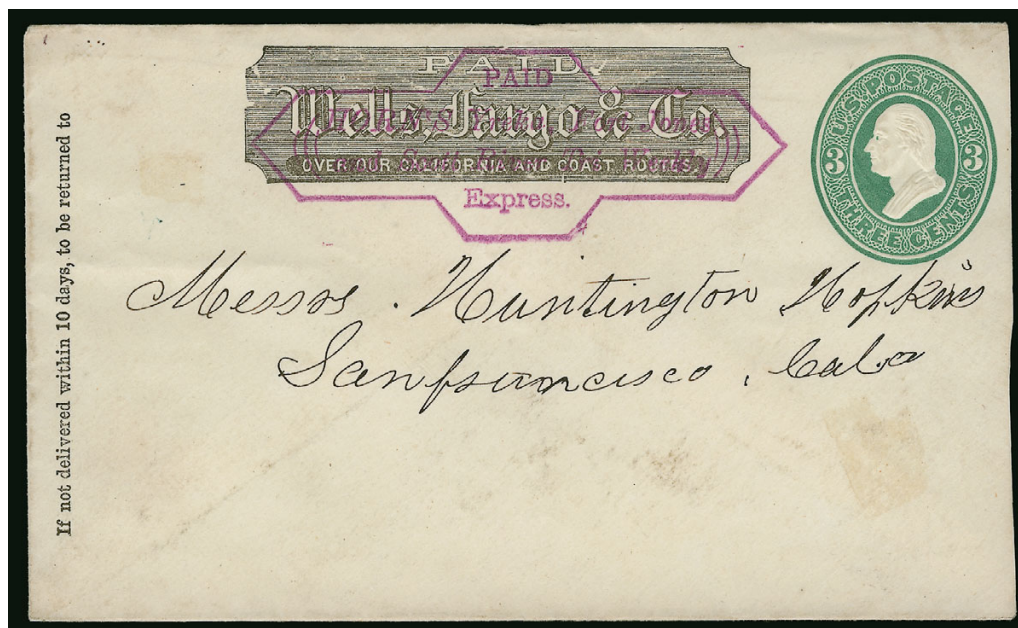 If not delivered within 10 days, to be returned to
PAID.
Wells, Fargo & Co.
OVER OUR CALIFORNIA AND COAST ROUTES.
PAID
Express.
U.S. POSTAGE
3 3
THREE CENTS
Messrs. Huntington Hopkins
Sanfrancisco, Cala